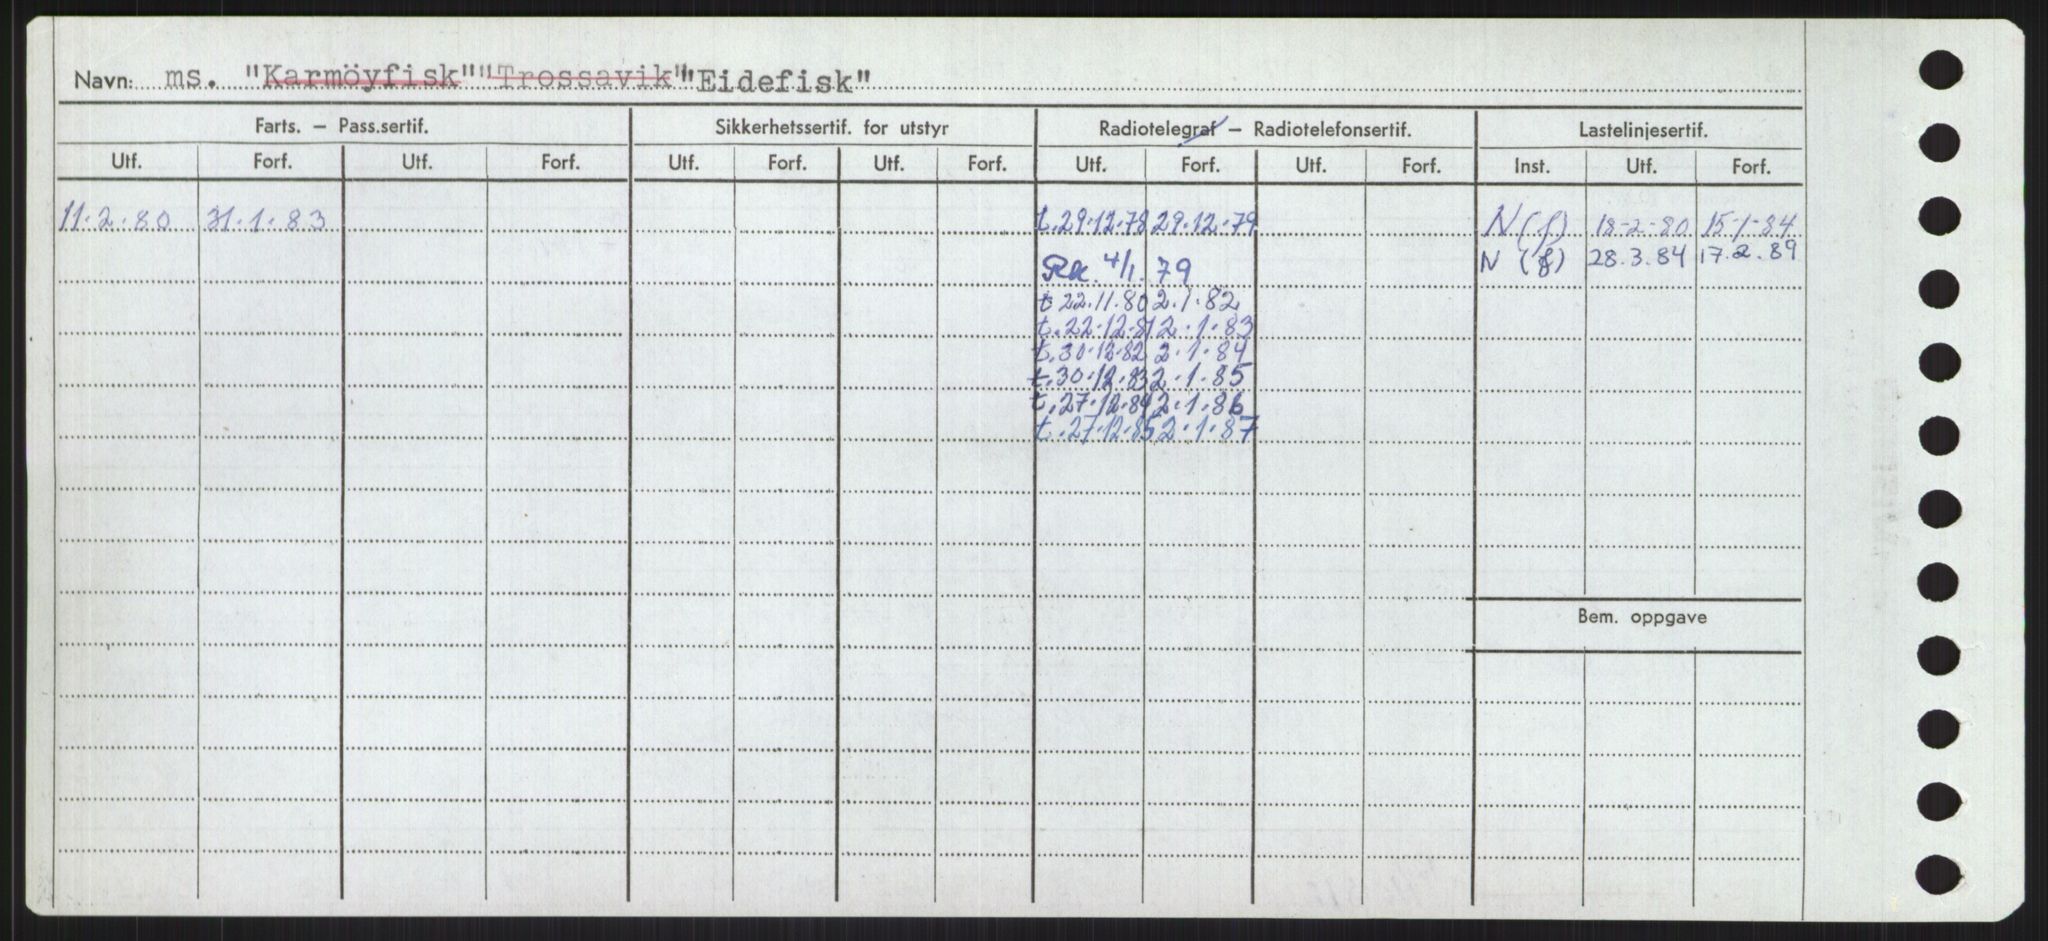 Navn: ms. "Karmöyfisk" "Trossavik" "Eidefisk"
Farts. – Pass.sertif. Sikkerhetssertif. for utstyr Radiotelegraf – Radiotelefonsertif. Lastelinjesertif.
Utf. Forf. Utf. Forf. Utf. Forf. Utf. Forf. Utf. Forf. Utf. Forf. Inst. Utf. Forf.
11.2.80 31.1.83 t.29.12.78 29.12.79 N (f) 18-2-80 15-1-84
N (f) 28.3.84 17.2.89
4/1.79
t 22.11.80 2.1.82
t.22.12.81 2.1.83
t.30.12.82 2.1.84
t.30.12.83 2.1.85
t.27.12.84 2.1.86
t.27.12.85 2.1.87
Bem. oppgave